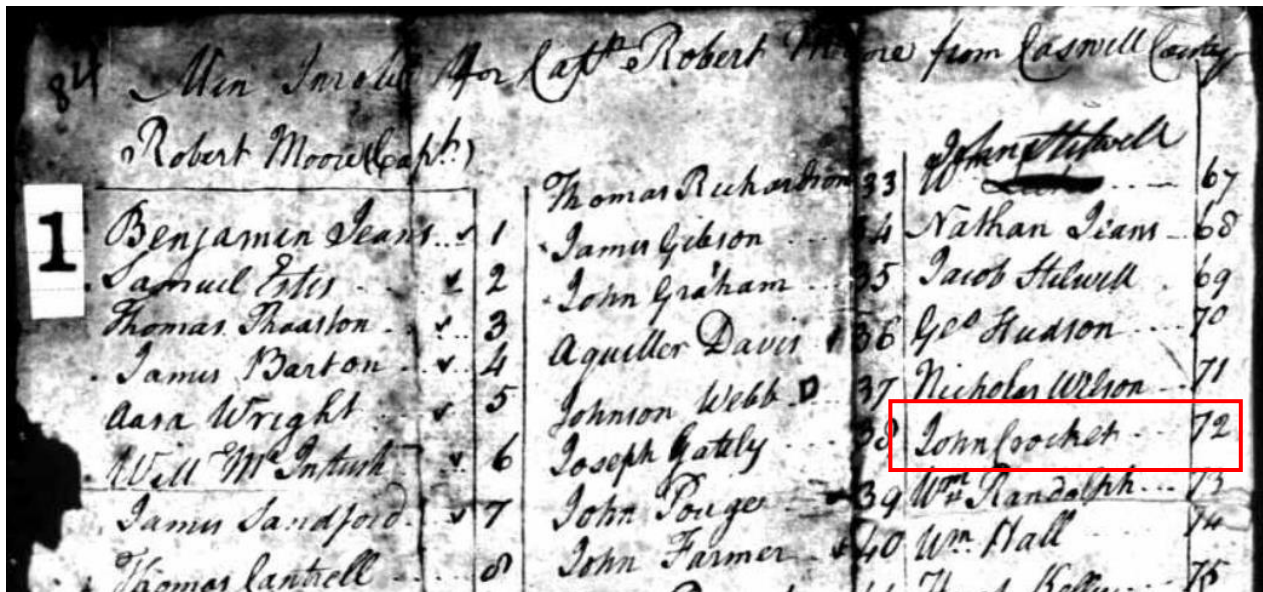 84
Men Inrold for Capt Robert Moore from Caswell County
Robert Moore (Capt.)
1
Benjamin Jeans 1
Samuel Estis 2
Thomas Thaxton 3
James Barton 4
Aasa Wright 5
Will McIntush 6
James Sandford 7
Thomas Cantrell 8
Thomas Richardson 33
James Gibson 34
John Graham 35
Aquiller Davis 36
Johnson Webb D 37
Joseph Gately 38
John Pouge 39
John Farmer 40
John Stilwell
67
Nathan Jeans 68
Jacob Stilwell 69
Geo Hudson 70
Nicholas Wilson 71
John Crocket 72
Wm Randalph 73
Wm Hall 74
Kelley 75